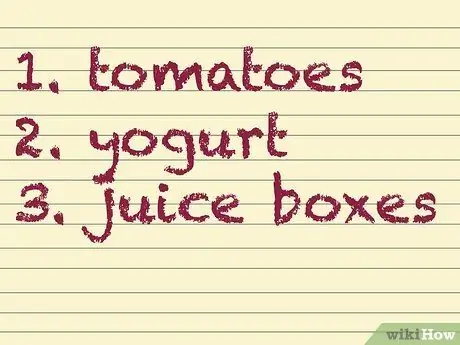 1. tomatoes
2. yogurt
3. juice boxes
wikiHow